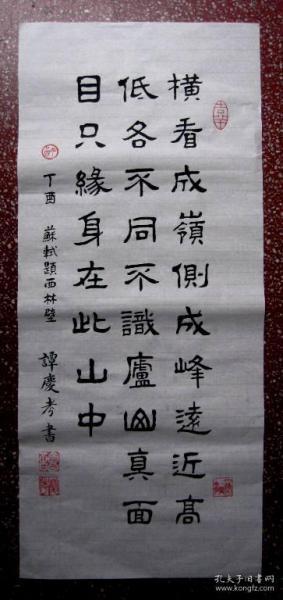 橫看成嶺側成峰遠近高
低各不同不識廬山真面
目只緣身在此山中
丁酉 蘇軾題西林壁 譚慶孝書
孔夫子旧书网
www.kongfz.com